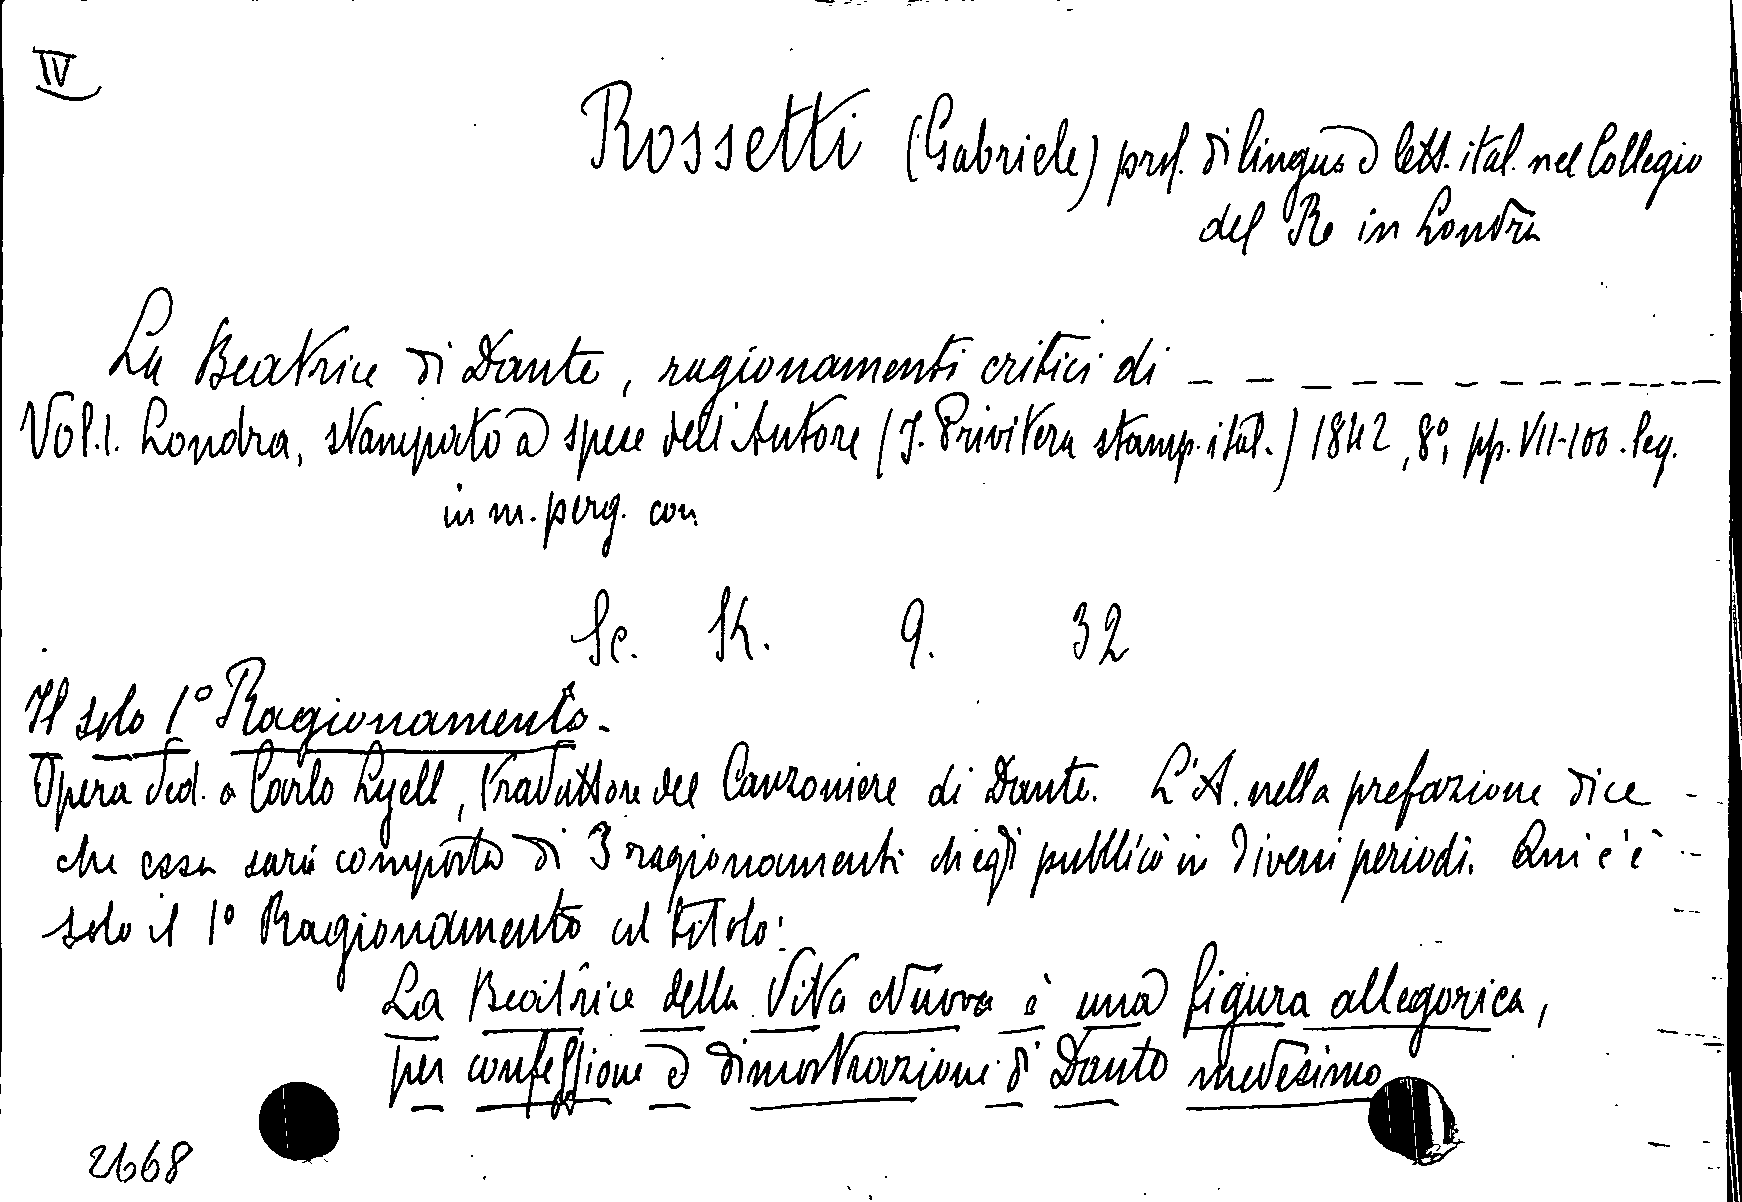 IV
Rossetti (Gabriele) prof. di lingua e lett. ital. nel Collegio
del Re in Londra
La Beatrice di Dante, ragionamenti critici di _ _ _ _ _ _ _ _ _ _ _ _ _ _
Vol. 1. Londra, stampato a spese dell'Autore (J. Privitera stamp. ital.) 1842, 8°, pp. VII-100. leg.
in m. perg. con
Sc. SK. 9. 32
Il solo 1° Ragionamento.
Opera ded. a Carlo Lyell, traduttore del Canzoniere di Dante. L'A. nella prefazione dice
che essa sarà composta di 3 ragionamenti ch'egli pubblicò in diversi periodi. Qui c'è
solo il 1° Ragionamento col titolo:
La Beatrice della Vita Nuova è una figura allegorica,
per confessione e dimostrazione di Dante medesimo
2668